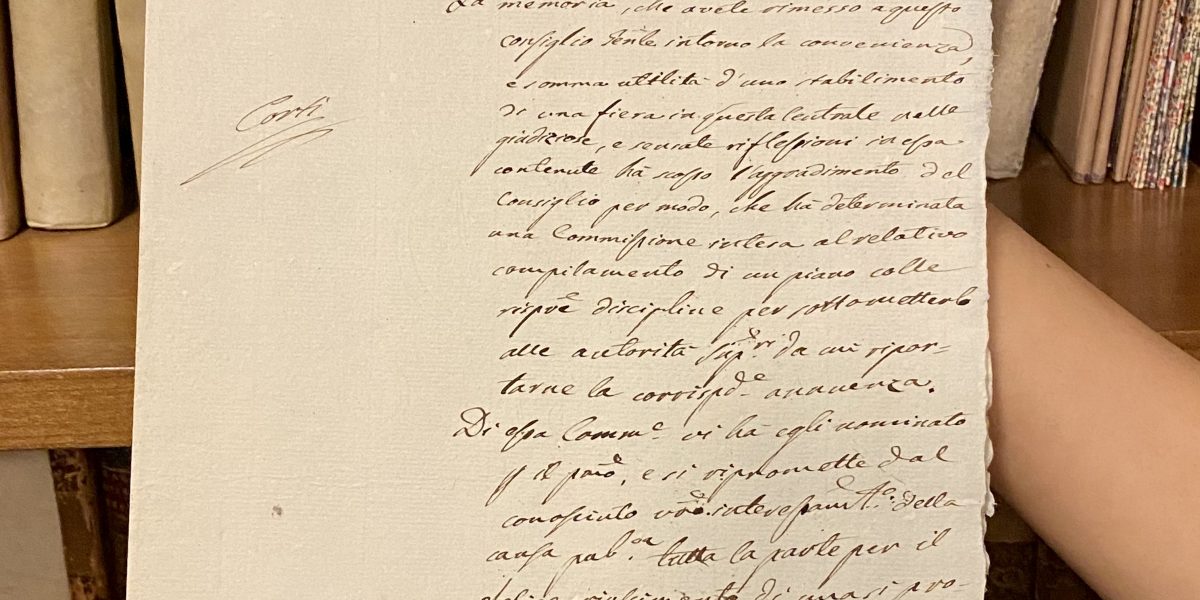 La memoria, che avete rimesso a questo
consiglio intorno la convenienza,
e somma utilità d'uno stabilimento
Corti
di una fiera in questa Centrale nelle
giudiziose, e sensate riflessioni in essa
contenute hà scosso l'aggradimento del
Consiglio per modo, che hà determinata
una Commissione intesa al relativo
compilamento di un piano colle
rispve discipline per sottometterlo
alle autorità Supri da cui ripor-
tarne la corrispde annuenza.
Di essa Comme vi hà egli nominato
e si ripromette dal
conosciuto vro interessamto della
causa pub.ca tutta la parte per il
di quasi pro-